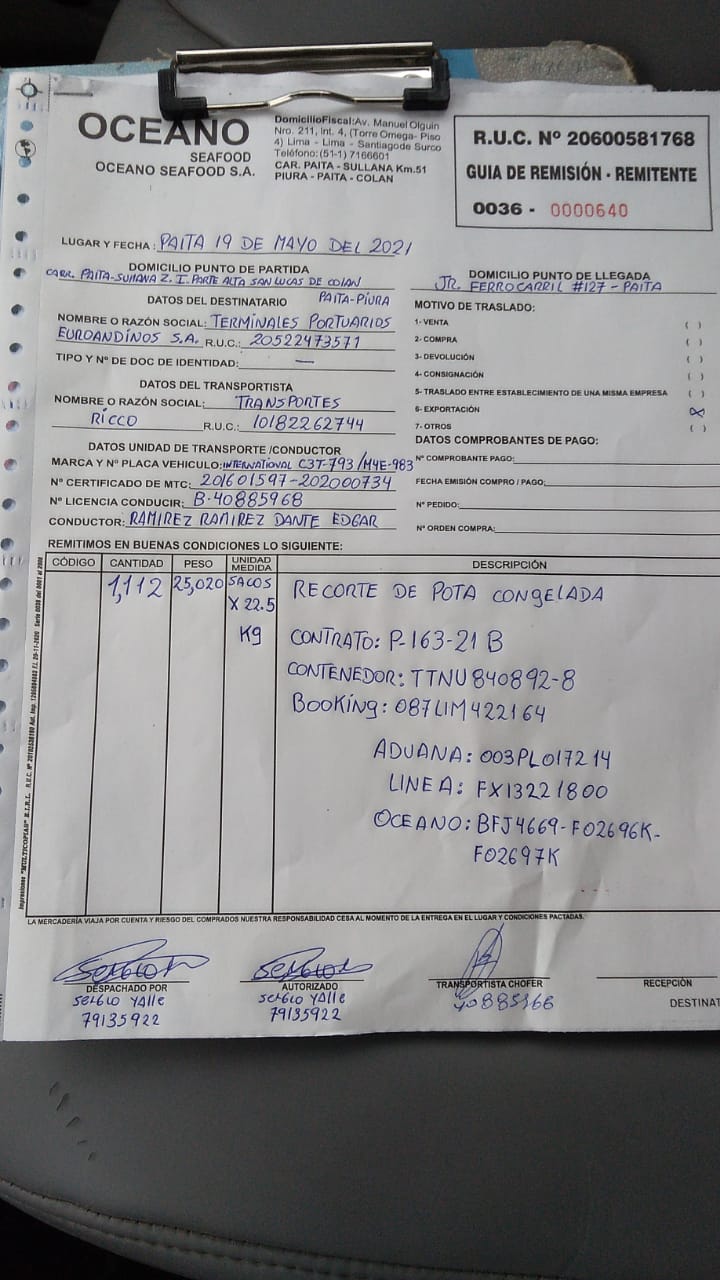 OCEANO
SEAFOOD
OCEANO SEAFOOD S.A.
DomicilioFiscal:Av. Manuel Olguin
Nro. 211, Int. 4, (Torre Omega- Piso
4) Lima - Lima - Santiagode Surco
Teléfono:(51-1) 7166601
CAR. PAITA - SULLANA Km.51
PIURA - PAITA - COLAN
R.U.C. Nº 20600581768
GUIA DE REMISIÓN - REMITENTE
0036 - 0000640
LUGAR Y FECHA : PAITA 19 DE MAYO DEL 2021
DOMICILIO PUNTO DE PARTIDA
CARR. PAITA-SULLANA Z.I. PARTE ALTA SAN LUCAS DE COLAN
PAITA-PIURA
DOMICILIO PUNTO DE LLEGADA
JR. FERROCARRIL #127 - PAITA
DATOS DEL DESTINATARIO
NOMBRE O RAZÓN SOCIAL: TERMINALES PORTUARIOS
EUROANDINOS S.A. R.U.C.: 20522473571
TIPO Y Nº DE DOC DE IDENTIDAD: —
DATOS DEL TRANSPORTISTA
NOMBRE O RAZÓN SOCIAL: TRANSPORTES
RICCO R.U.C.: 10182262744
DATOS UNIDAD DE TRANSPORTE /CONDUCTOR
MARCA Y Nº PLACA VEHICULO: INTERNATIONAL C3T-793/M4E-983
Nº CERTIFICADO DE MTC: 201601597-202000734
Nº LICENCIA CONDUCIR: B-40885968
CONDUCTOR: RAMIREZ RAMIREZ DANTE EDGAR
MOTIVO DE TRASLADO:
1- VENTA ( )
2- COMPRA ( )
3- DEVOLUCIÓN ( )
4- CONSIGNACIÓN ( )
5- TRASLADO ENTRE ESTABLECIMIENTO DE UNA MISMA EMPRESA ( )
6- EXPORTACIÓN (X)
7- OTROS ( )
DATOS COMPROBANTES DE PAGO:
Nº COMPROBANTE PAGO:
FECHA EMISIÓN COMPRO / PAGO:
Nº PEDIDO:
Nº ORDEN COMPRA:
REMITIMOS EN BUENAS CONDICIONES LO SIGUIENTE:
CÓDIGO CANTIDAD PESO UNIDAD MEDIDA DESCRIPCIÓN
1,112 25,020 SACOS RECORTE DE POTA CONGELADA
X 22.5
Kg
CONTRATO: P-163-21 B
CONTENEDOR: TTNU 840892-8
BOOKING: 087LIM422164
ADUANA: 003PL017214
LINEA: FX13221800
OCEANO: BFJ4669-F02696K-
F02697K
LA MERCADERÍA VIAJA POR CUENTA Y RIESGO DEL COMPRADOS NUESTRA RESPONSABILIDAD CESA AL MOMENTO DE LA ENTREGA EN EL LUGAR Y CONDICIONES PACTADAS.
DESPACHADO POR
Sergio Yalle
79135922
AUTORIZADO
Sergio Yalle
79135922
TRANSPORTISTA CHOFER
RECEPCIÓN
DESTINAT